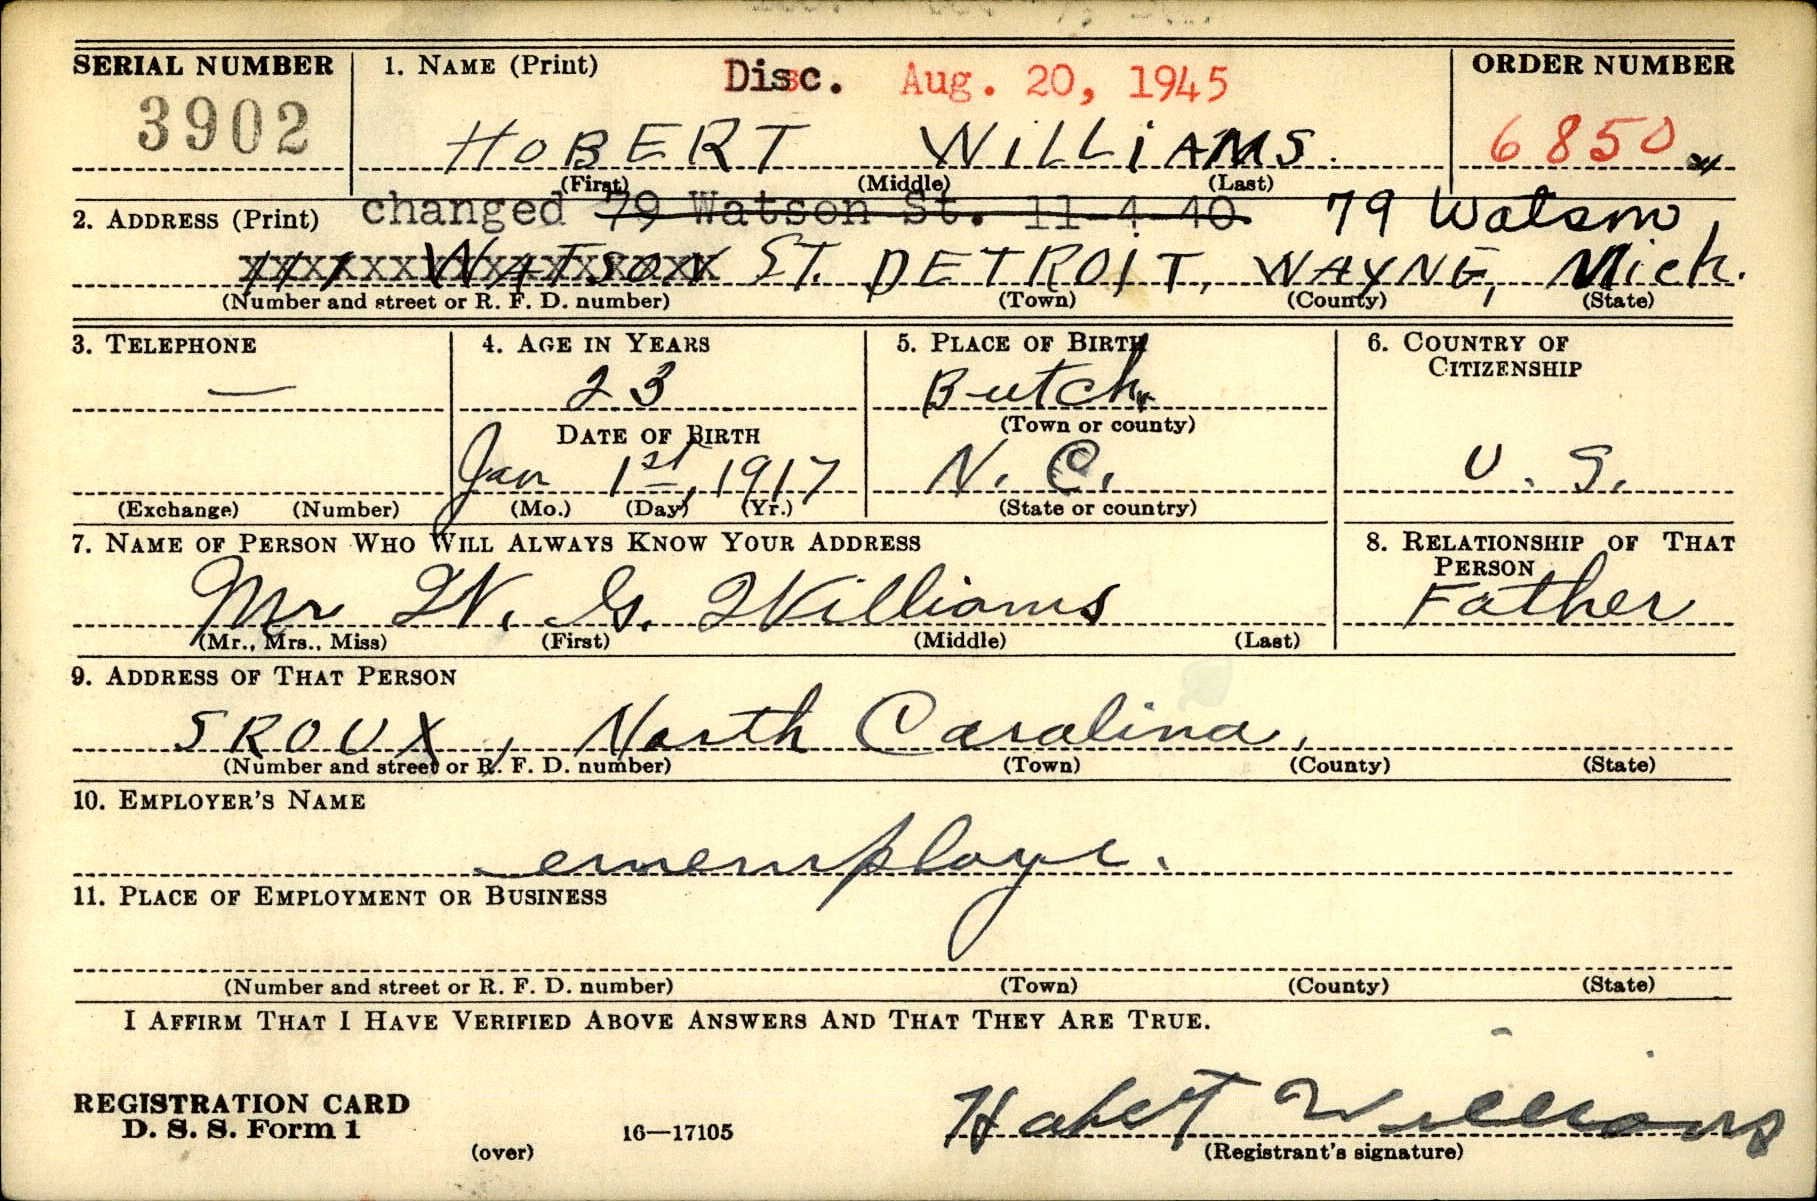 SERIAL NUMBER
3902
1. NAME (Print)
Disc. Aug. 20, 1945
HOBERT WILLIAMS.
(First) (Middle) (Last)
ORDER NUMBER
6850
2. ADDRESS (Print)
changed 79 Watson St. 11-4-40 79 Watson
WATSON ST. DETROIT, WAYNE, Mich.
(Number and street or R. F. D. number) (Town) (County) (State)
3. TELEPHONE
—
(Exchange) (Number)
4. AGE IN YEARS
23
DATE OF BIRTH
Jan 1st, 1917
(Mo.) (Day) (Yr.)
5. PLACE OF BIRTH
Butch.
(Town or county)
N. C.
(State or country)
6. COUNTRY OF
CITIZENSHIP
U. S.
7. NAME OF PERSON WHO WILL ALWAYS KNOW YOUR ADDRESS
Mr W. G. Williams
(Mr., Mrs., Miss) (First) (Middle) (Last)
8. RELATIONSHIP OF THAT
PERSON
Father
9. ADDRESS OF THAT PERSON
SROUX, North Carolina,
(Number and street or R. F. D. number) (Town) (County) (State)
10. EMPLOYER'S NAME
11. PLACE OF EMPLOYMENT OR BUSINESS
(Number and street or R. F. D. number) (Town) (County) (State)
I AFFIRM THAT I HAVE VERIFIED ABOVE ANSWERS AND THAT THEY ARE TRUE.
REGISTRATION CARD
D. S. S. Form 1
(over)
16—17105
Hobert Williams
(Registrant's signature)